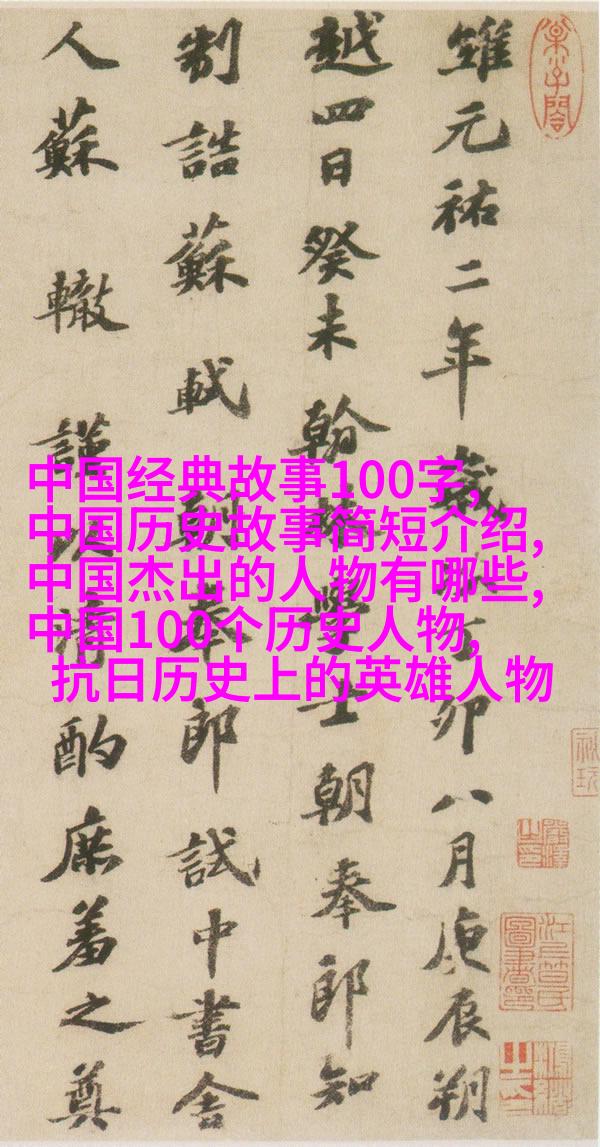 維元祐二年歲次丁卯八月庚辰朔
越四日癸未翰林學士朝奉郎知
制誥蘇軾朝奉郎試中書舍
人蘇轍謹以清酌庶羞之奠
中国经典故事100字,
中国历史故事简短介绍,
中国杰出的人物有哪些,
中国100个历史人物,
抗日历史上的英雄人物